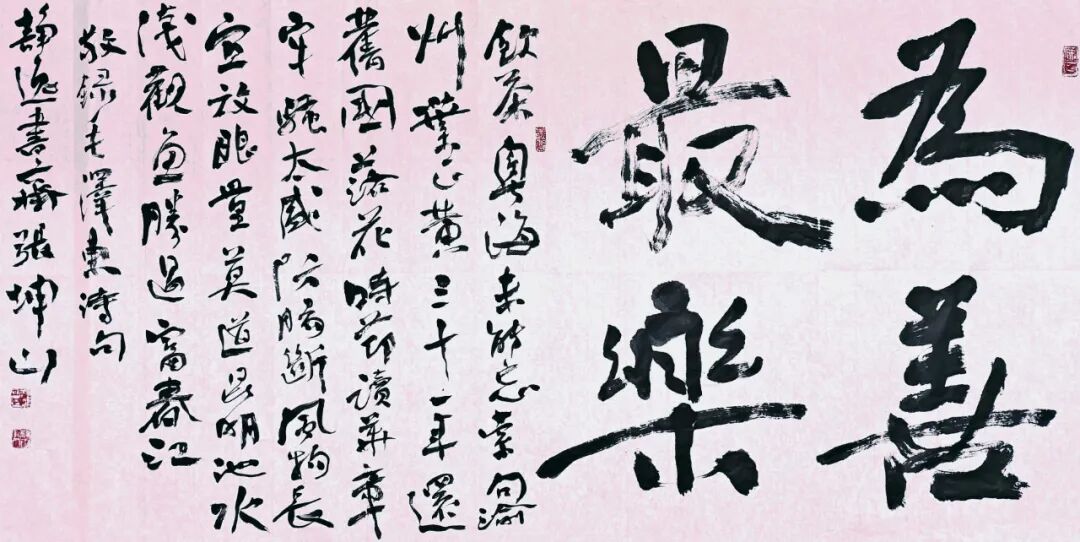 為善
最樂
飲茶粵海未能忘索句渝
州葉正黃三十一年還
舊國落花時節讀華章
牢騷太盛防腸斷風物長
宜放眼量莫道昆明池水
淺觀魚勝過富春江
敬錄毛澤東詩句
靜逸書齋張坤山